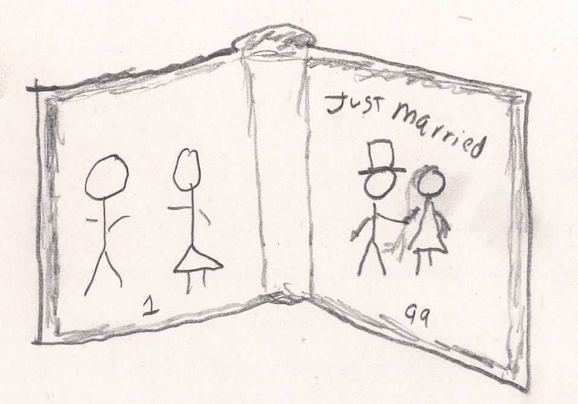 1
Just Married
99